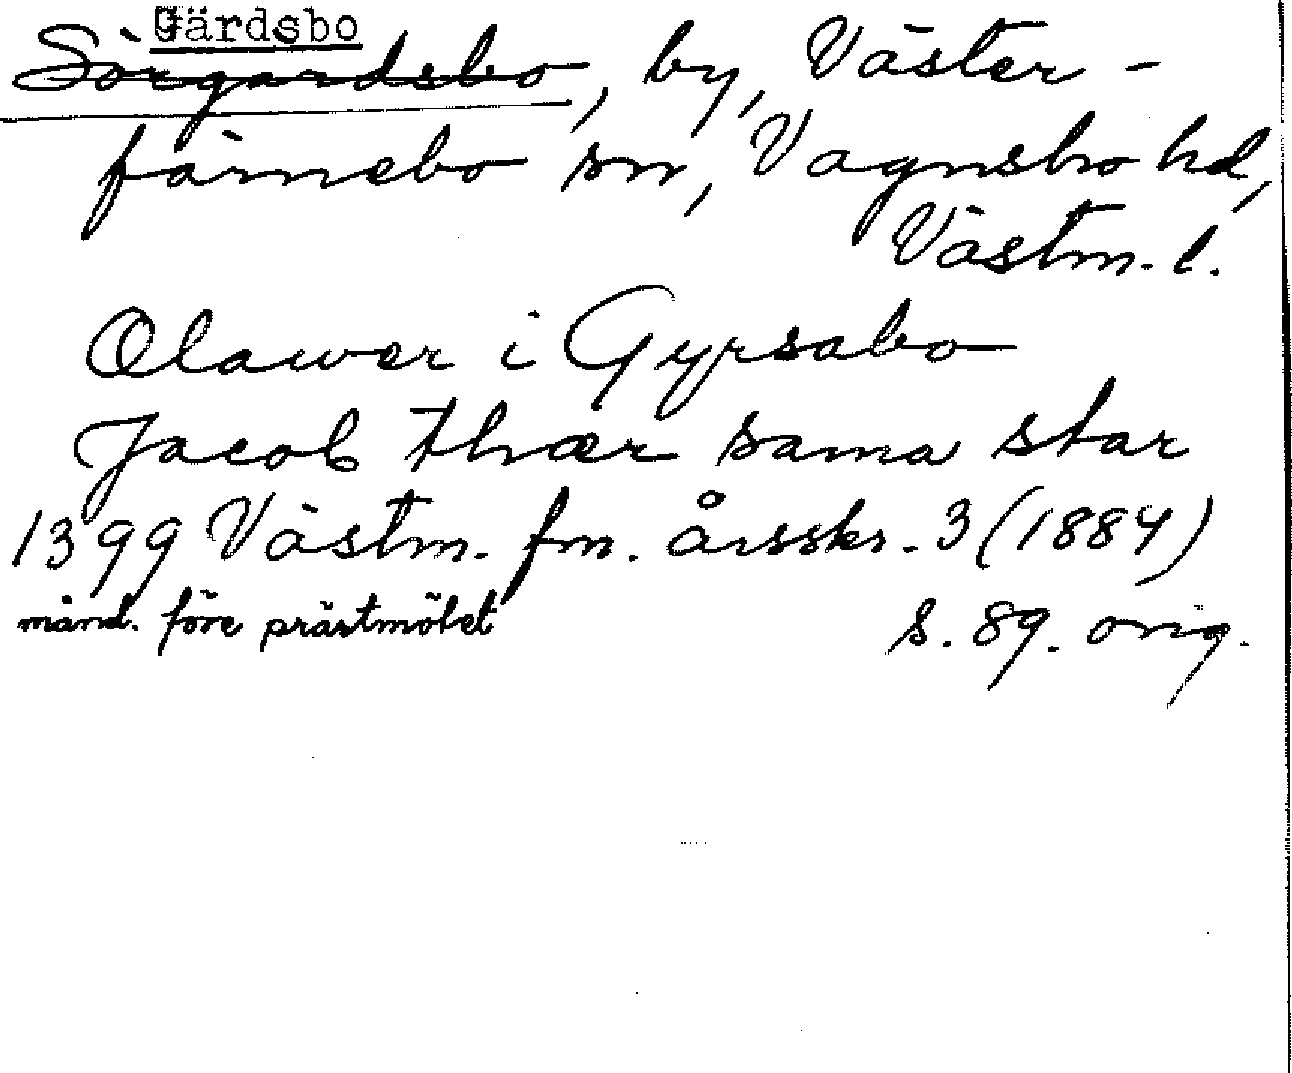 Gärdsbo
Sörgardsbo, by, Väster-
färnebo sn, Vagnsbro hd,
Västm. l.
Olawer i Gyrsabo
Jacob thær sama star
1399 Västm. fm. årsskr. 3 (1884)
månd. före prästmötet s. 89. orig.